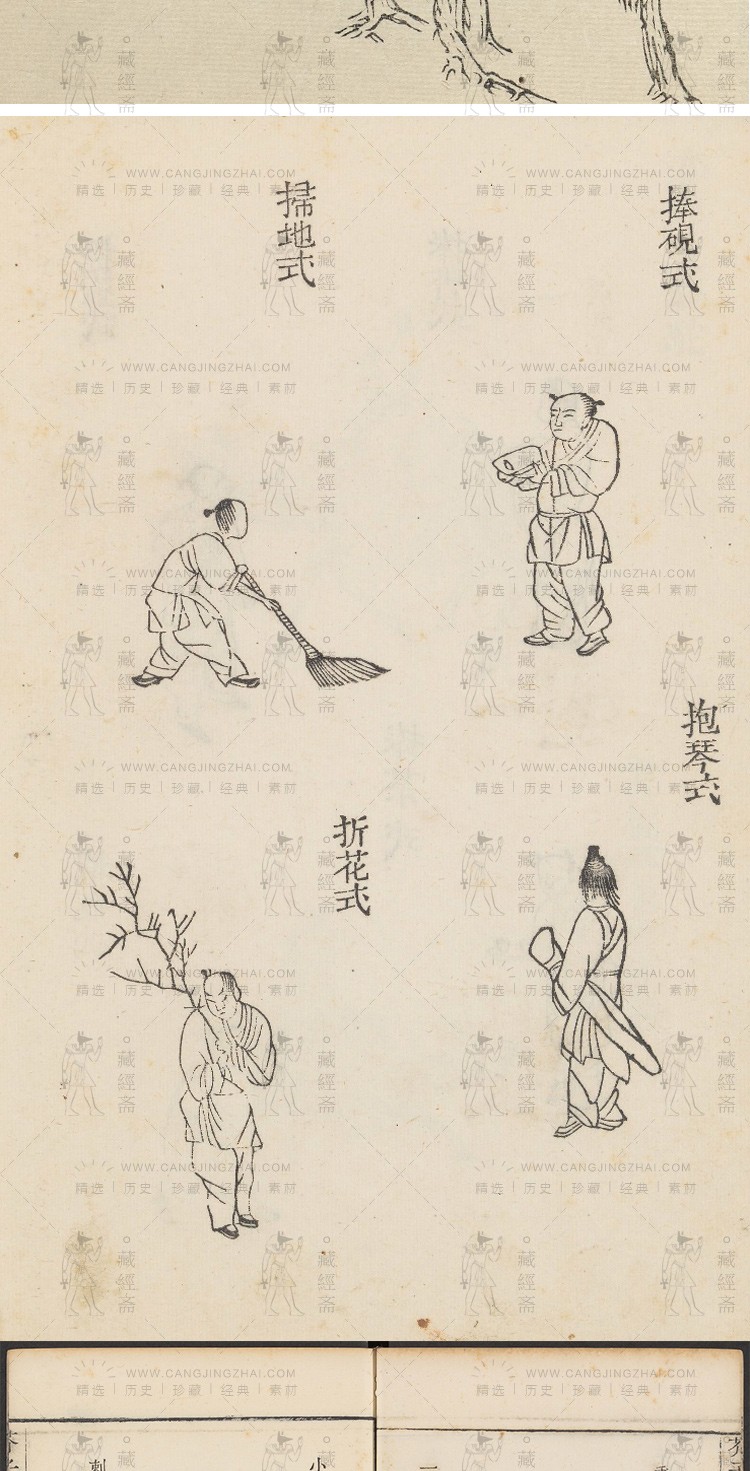 捧硯式
掃地式
抱琴式
折花式
WWW.CANGJINGZHAI.COM
精选 | 历史 | 珍藏 | 经典 | 素材
藏經斋
小
刺
一